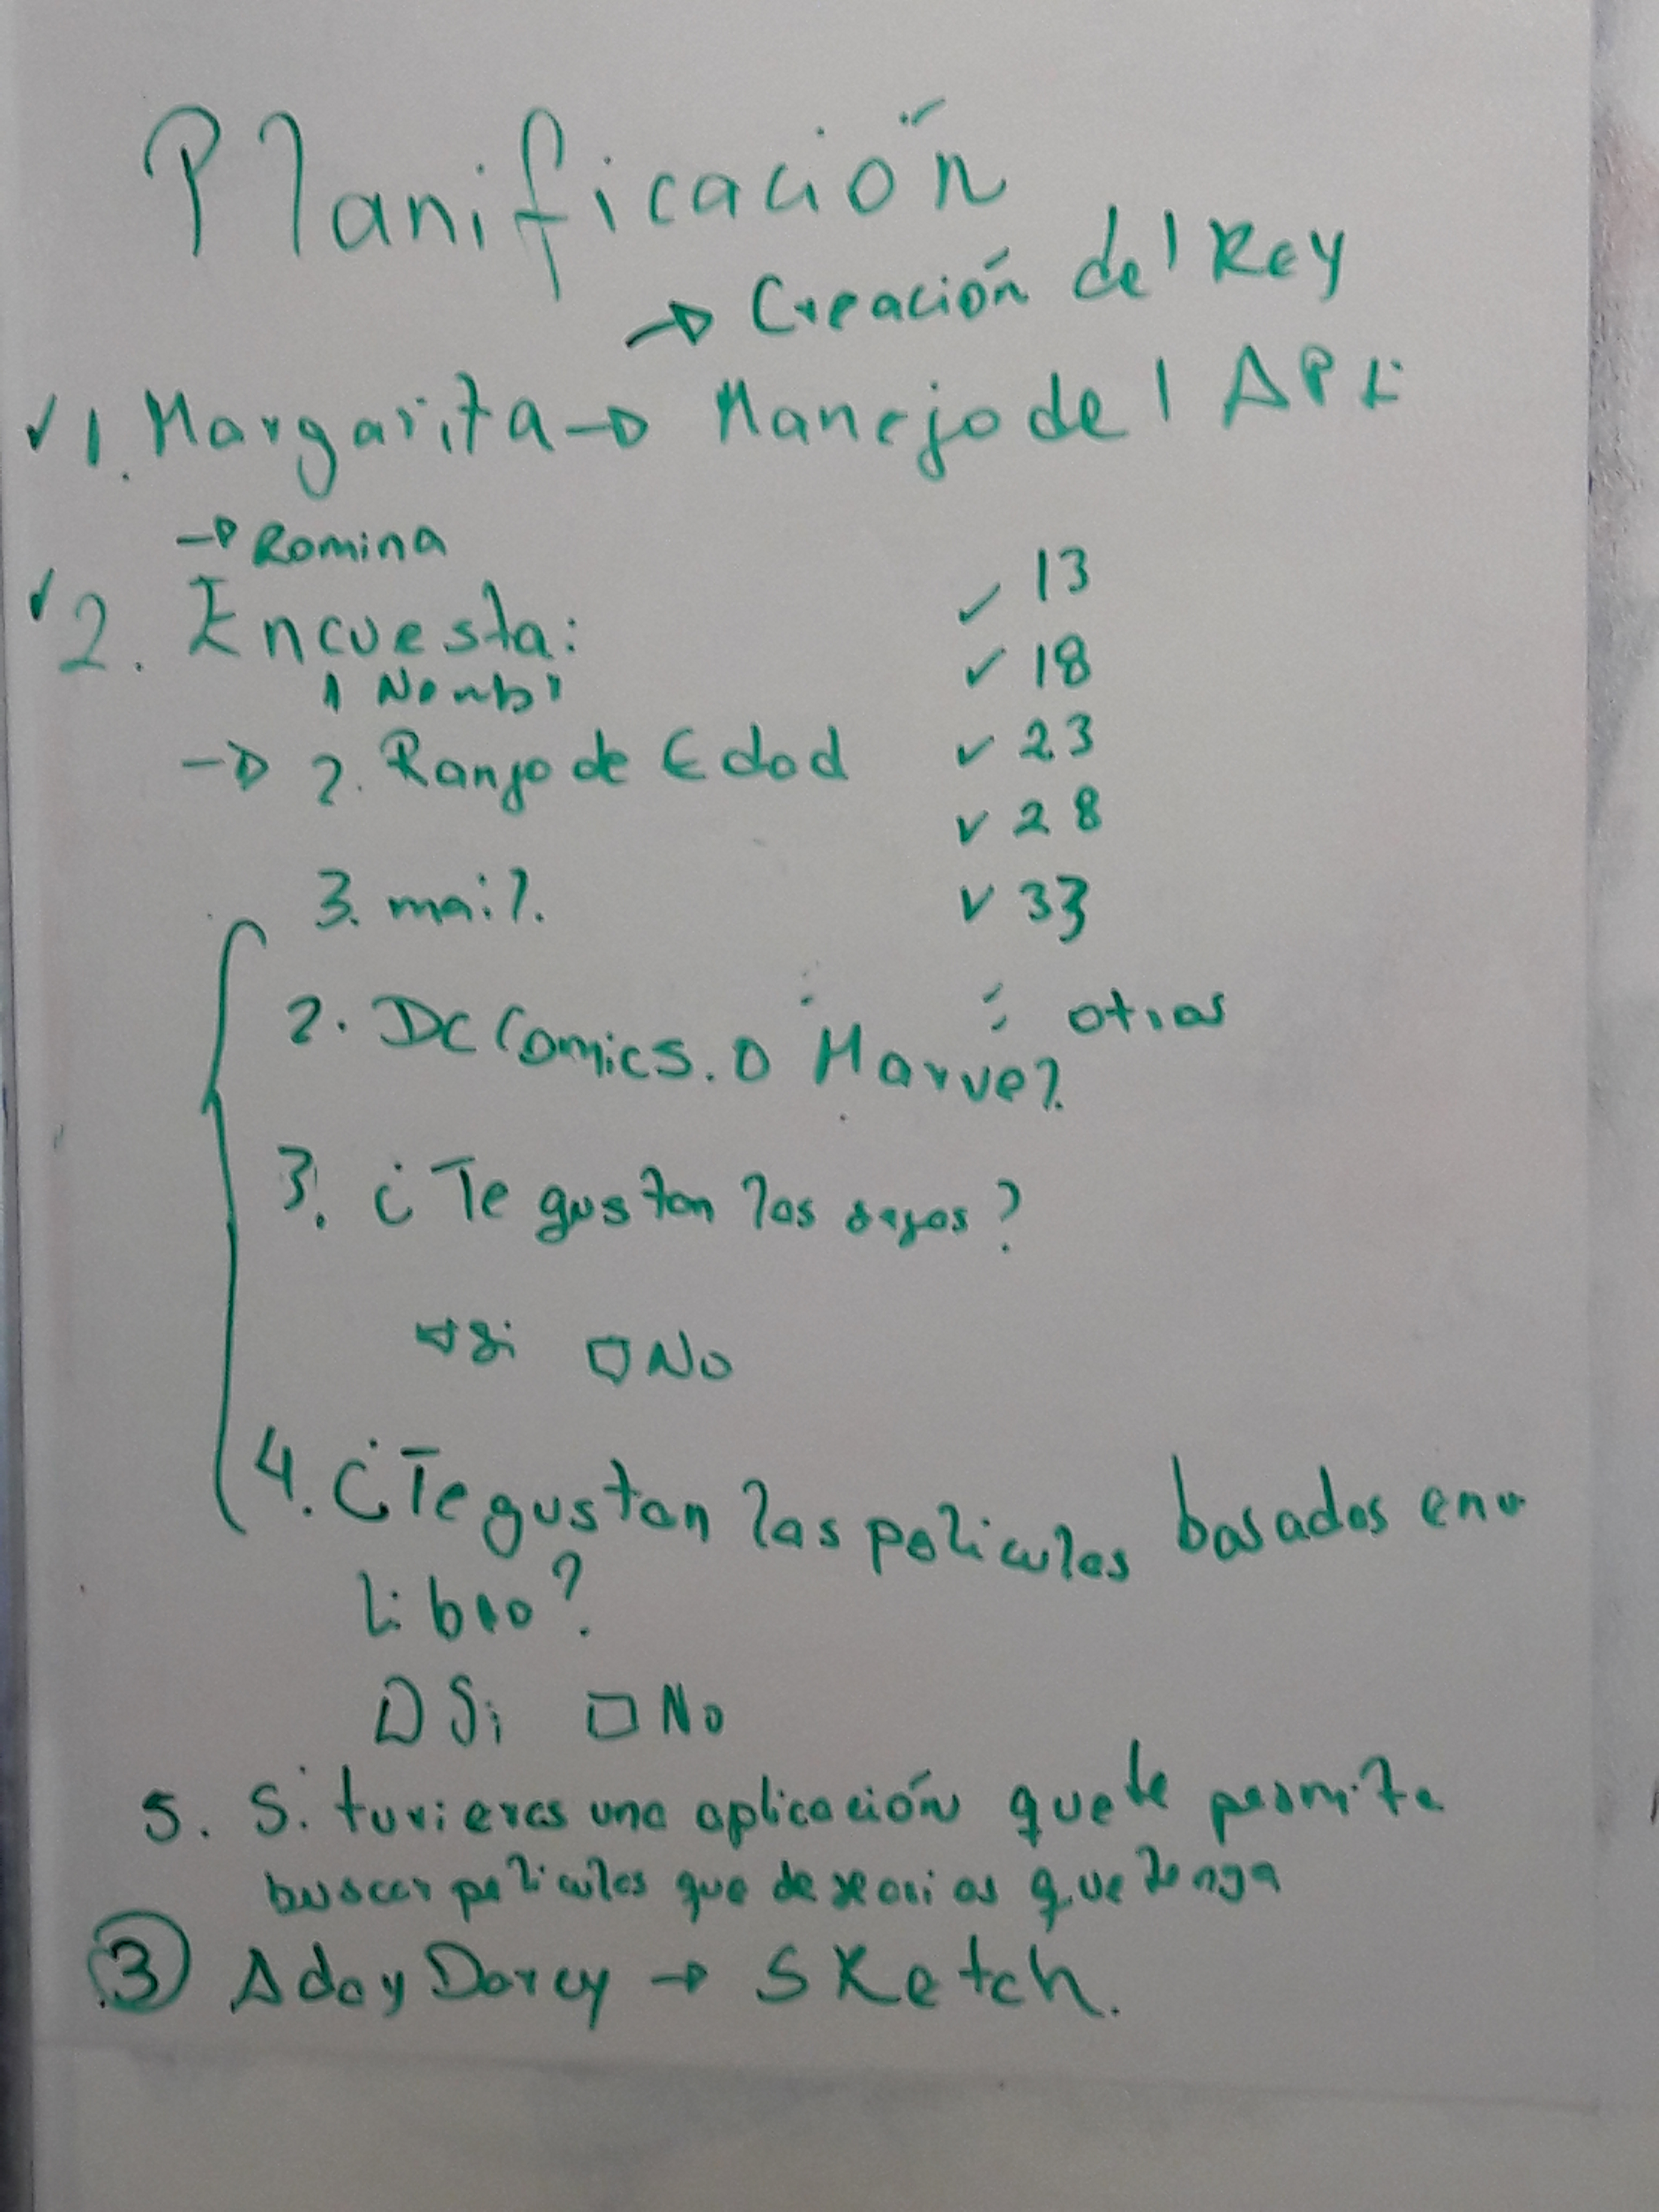 Planificación
→ Creación del Key
✓ 1. Margarita → Manejo del API
→ Romina
✓ 2. Encuesta:
1 Nombr
→ 2. Rango de Edad
✓ 13
✓ 18
✓ 23
✓ 28
✓ 33
3. mail.
2. DC Comics. o Marvel. otras
3. ¿Te gustan las sagas?
Si □ No
4. ¿Te gustan las peliculas basadas en
Libro?
□ Si □ No
5. Si tuvieras una aplicación que te permita
buscar peliculas que desearias que tenga
③ Ada y Darcy → Sketch.